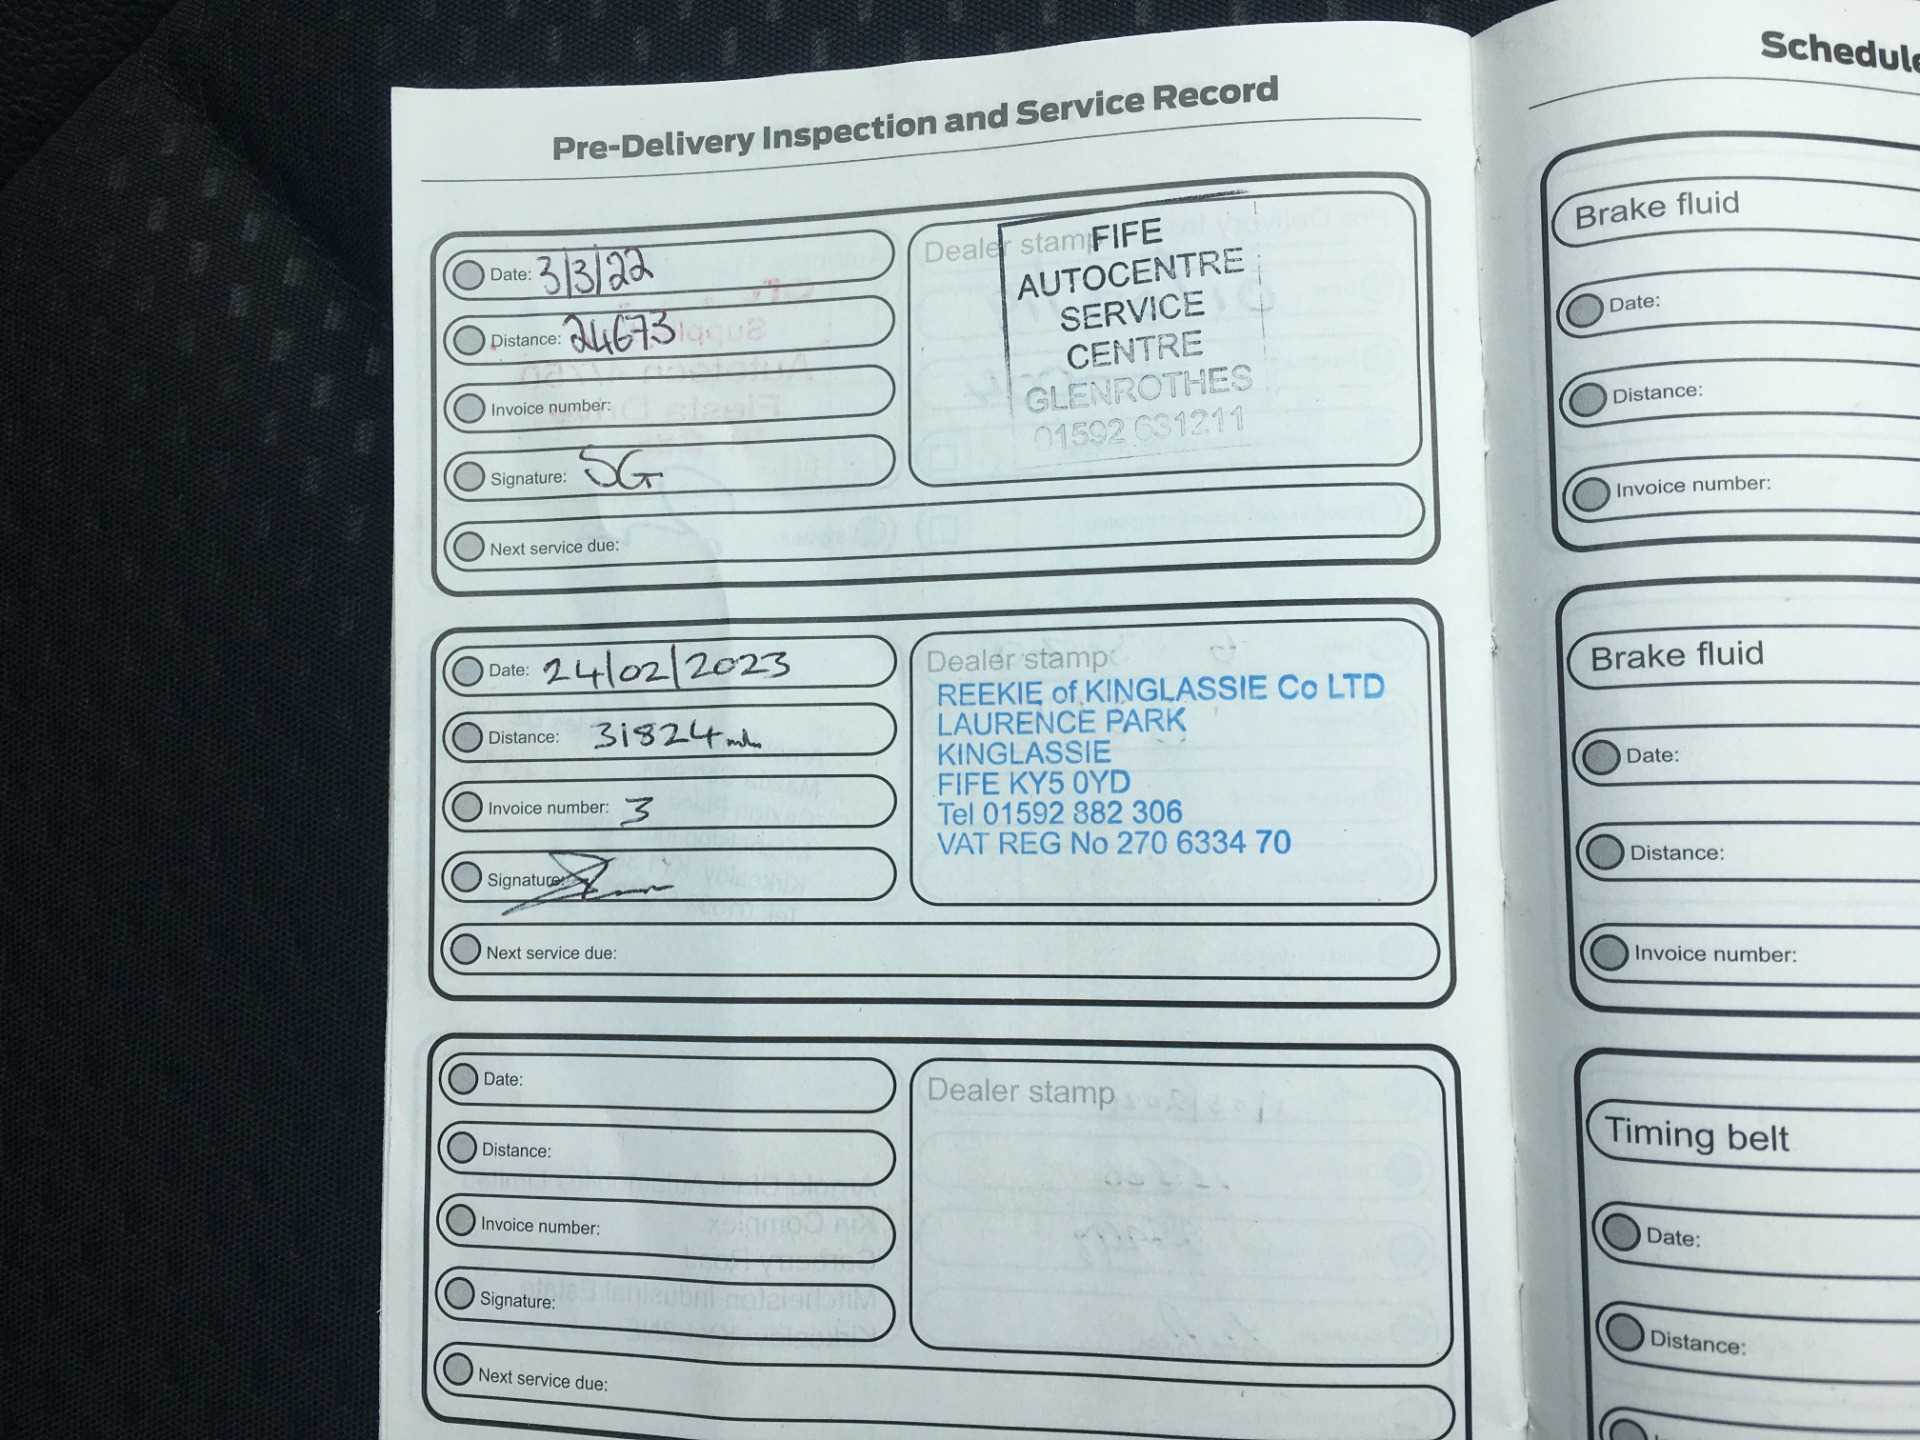 Pre-Delivery Inspection and Service Record
Date: 3/3/22
Distance: 24673
Invoice number:
Signature: SG
Next service due:
Dealer stamp
FIFE
AUTOCENTRE
SERVICE
CENTRE
GLENROTHES
01592 631211
Date: 24/02/2023
Distance: 31824
Invoice number: 3
Signature:
Next service due:
Dealer stamp
REEKIE of KINGLASSIE Co LTD
LAURENCE PARK
KINGLASSIE
FIFE KY5 0YD
Tel 01592 882 306
VAT REG No 270 6334 70
Date:
Distance:
Invoice number:
Signature:
Next service due:
Dealer stamp
Brake fluid
Date:
Distance:
Invoice number:
Brake fluid
Date:
Distance:
Invoice number:
Timing belt
Date:
Distance: